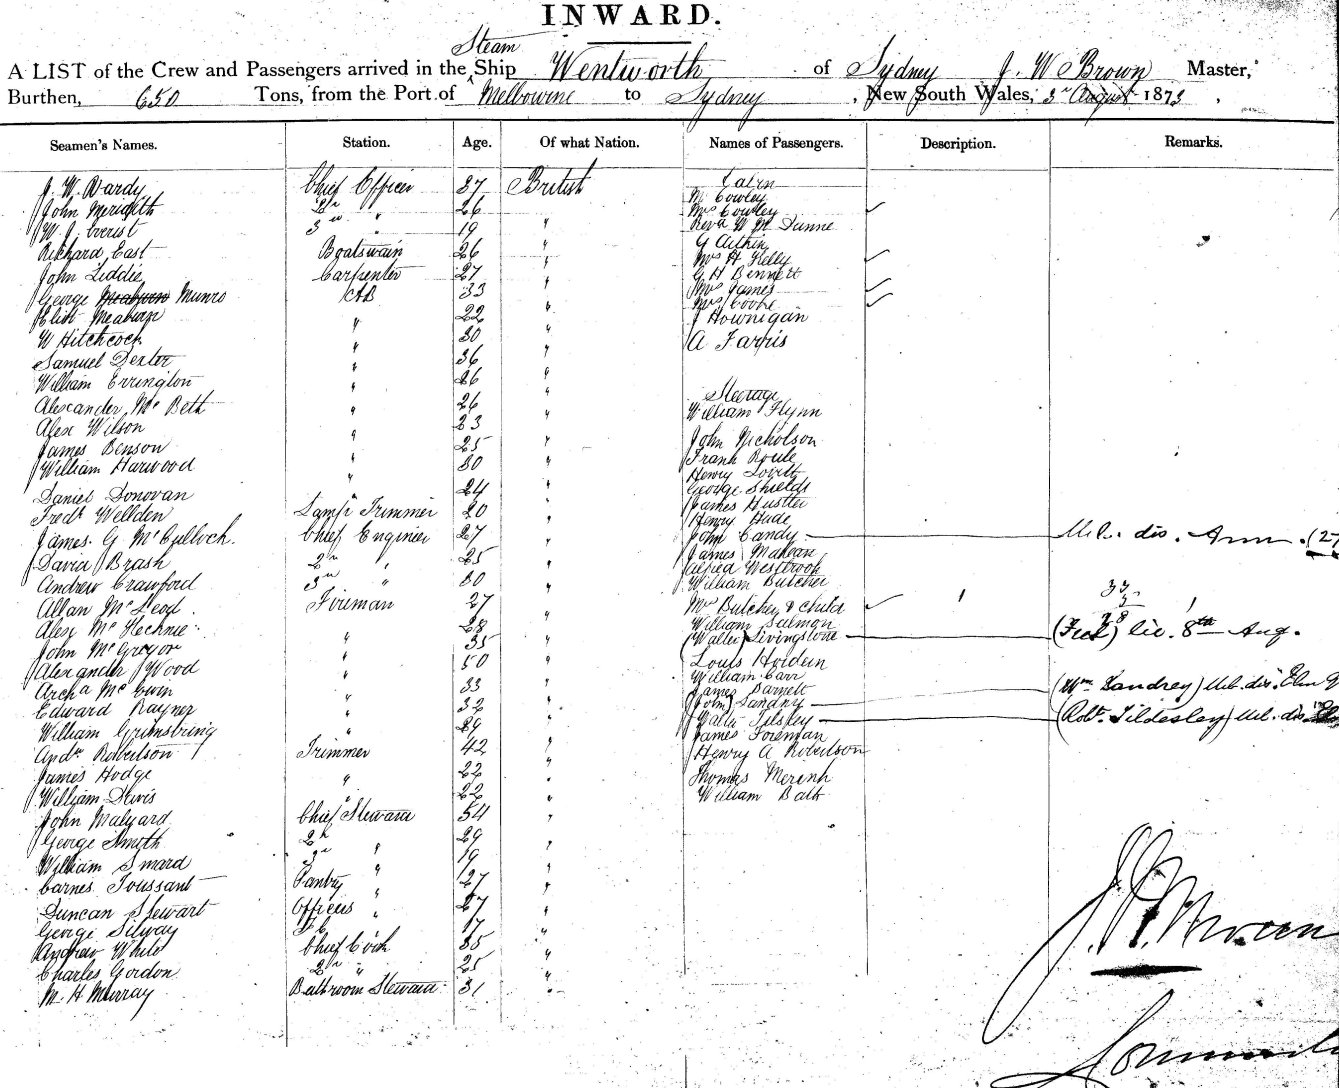 INWARD.
Steam
A LIST of the Crew and Passengers arrived in the Ship Wentworth of Sydney J. W Brown Master,
Burthen, 650 Tons, from the Port of Melbourne to Sydney, New South Wales, 3rd August 1873,
Seamen's Names. Station. Age. Of what Nation. Names of Passengers. Description. Remarks.
J. W. Hardy Chief Officer 37 British
John Meridith 2nd " 26 "
W. J. Everist 3rd " 19 "
Richard East Boatswain 26 "
John Liddie Carpenter 27 "
George Meaburn Munro AB 33 "
Meaburn " 22 "
W Hitchcock " 30 "
Samuel Dexter " 36 "
William Errington " 26 "
Alexander McBeth " 26 "
Alex Wilson " 23 "
James Benson " 25 "
William Harwood " 30 "
Daniel Donovan " 24 "
Fredk Wellden Lamp Trimmer 20 "
James. G McCulloch. Chief Engineer 27 "
David Brash 2nd " 25 "
Andrew Crawford 3rd " 30 "
Allan McLeod. Fireman 27 "
Alex McKechnie 28 "
John McGregor " 35 "
Alexander Wood " 50 "
Archd 33 "
Edward Rayner " 32 "
William " 29 "
Andw Robertson Trimmer 42 "
James Hodge " 22 "
William Davis " 22 "
John Malyard Chief Steward 54 "
George Smyth 2nd " 29 "
William Smard 3rd " 19 "
Carnes Toussant Pantry " 27 "
Duncan Stewart Officers " 27 "
George Silway 17 "
Andrew White Chief Cook 35 "
Charles Gordon 2nd " 25 "
M. H Murray Bathroom Steward 31 "
Cabin
Mr Cowley
Mrs Cowley
Revd W M Dunne
G Aitkin
Mrs H Kelly
G H Bennett
Mrs James
Mrs Cooke
J Hownigan
A Farris
Steerage
William Flynn
John Nicholson
Frank Boule
Henry Lovett
George Shields
James Hustler
Henry Hude
John Candy
James
Alfred Westbrook
William Butcher
Mrs Butcher & child
William Salmon
(Walter) Livingstone
Louis Holdein
William Carr
James Barnett
(John) Landry
Walter Tilsley
James Foreman
Henry A Robertson
Thomas
William Balt
Mel. dis. Ann. (27
33
5
28
(Fred) lic. 8th Aug.
(Wm Landrey) Mel. dis.
(Robt. Tildesley) Mel. dis.